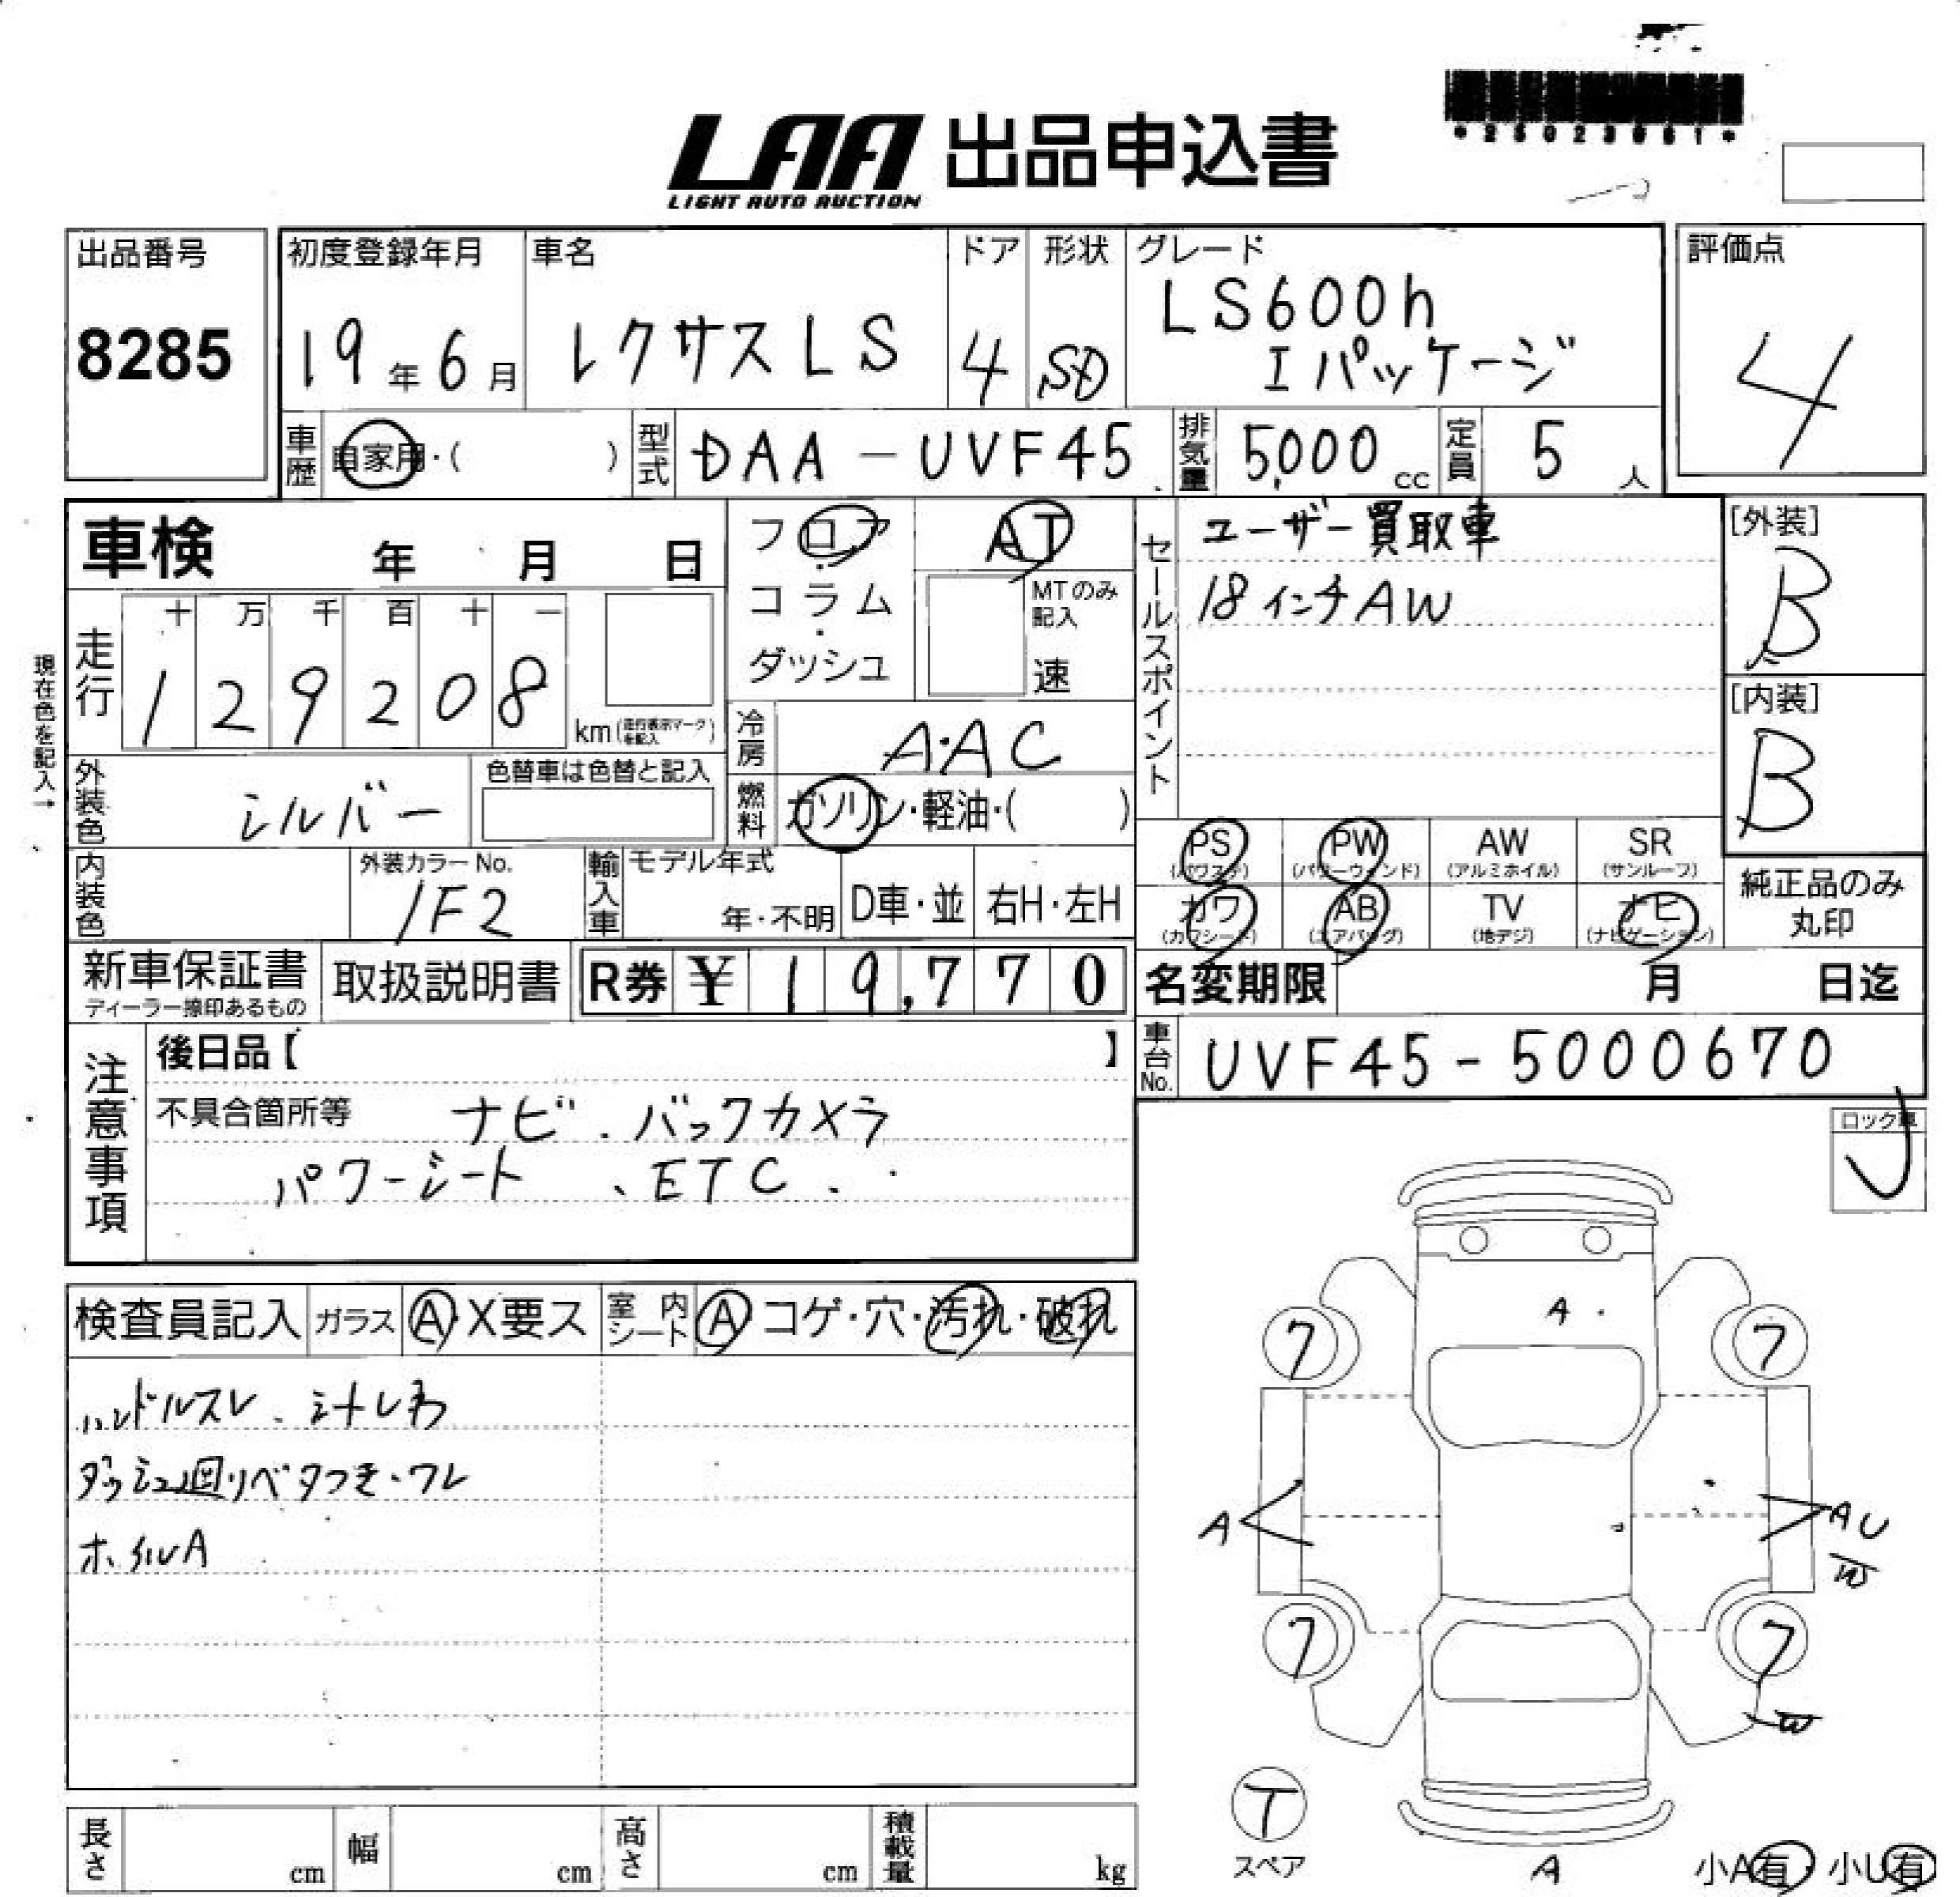 *25023961*
LAA 出品申込書
LIGHT AUTO AUCTION
出品番号
8285
初度登録年月
19年6月
車名
レクサスLS
ドア
4
形状
SD
グレード
LS600h
Iパッケージ
評価点
4
車歴 自家用・( )
型式 DAA-UVF45
排気量 5,000 cc
定員 5 人
車検 年 月 日
フロア・コラム・ダッシュ
AT
MTのみ記入
速
セールスポイント
ユーザー買取車
18インチAW
[外装]
B
[内装]
B
現在色を記入→
走行
十 万 千 百 十 一
1 2 9 2 0 8
km(走行表示マークを記入)
冷房 A・AC
燃料 ガソリン・軽油・( )
外装色 シルバー
色替車は色替と記入
内装色
外装カラーNo.
1F2
輸入車
モデル年式
年・不明
D車・並
右H・左H
PS (パワステ)
PW (パワーウィンド)
AW (アルミホイル)
SR (サンルーフ)
カワ (カワシート)
AB (エアバッグ)
TV (地デジ)
ナビ (ナビゲーション)
純正品のみ
丸印
新車保証書
ディーラー捺印あるもの
取扱説明書
R券 ¥19,770
名変期限 月 日迄
車台No. UVF45-5000670
注意事項
後日品【 】
不具合箇所等 ナビ、バックカメラ
パワーシート、ETC.
ロック車
検査員記入
ガラス A・X要ス
室内シート A コゲ・穴・汚れ・破れ
ハンドルスレ、シートしわ
ダッシュ回りベタつき・ワレ
ホイルA
A
7
7
A
AU
W
7
7
W
T
スペア
A
小A有・小U有
長さ cm
幅 cm
高さ cm
積載量 kg